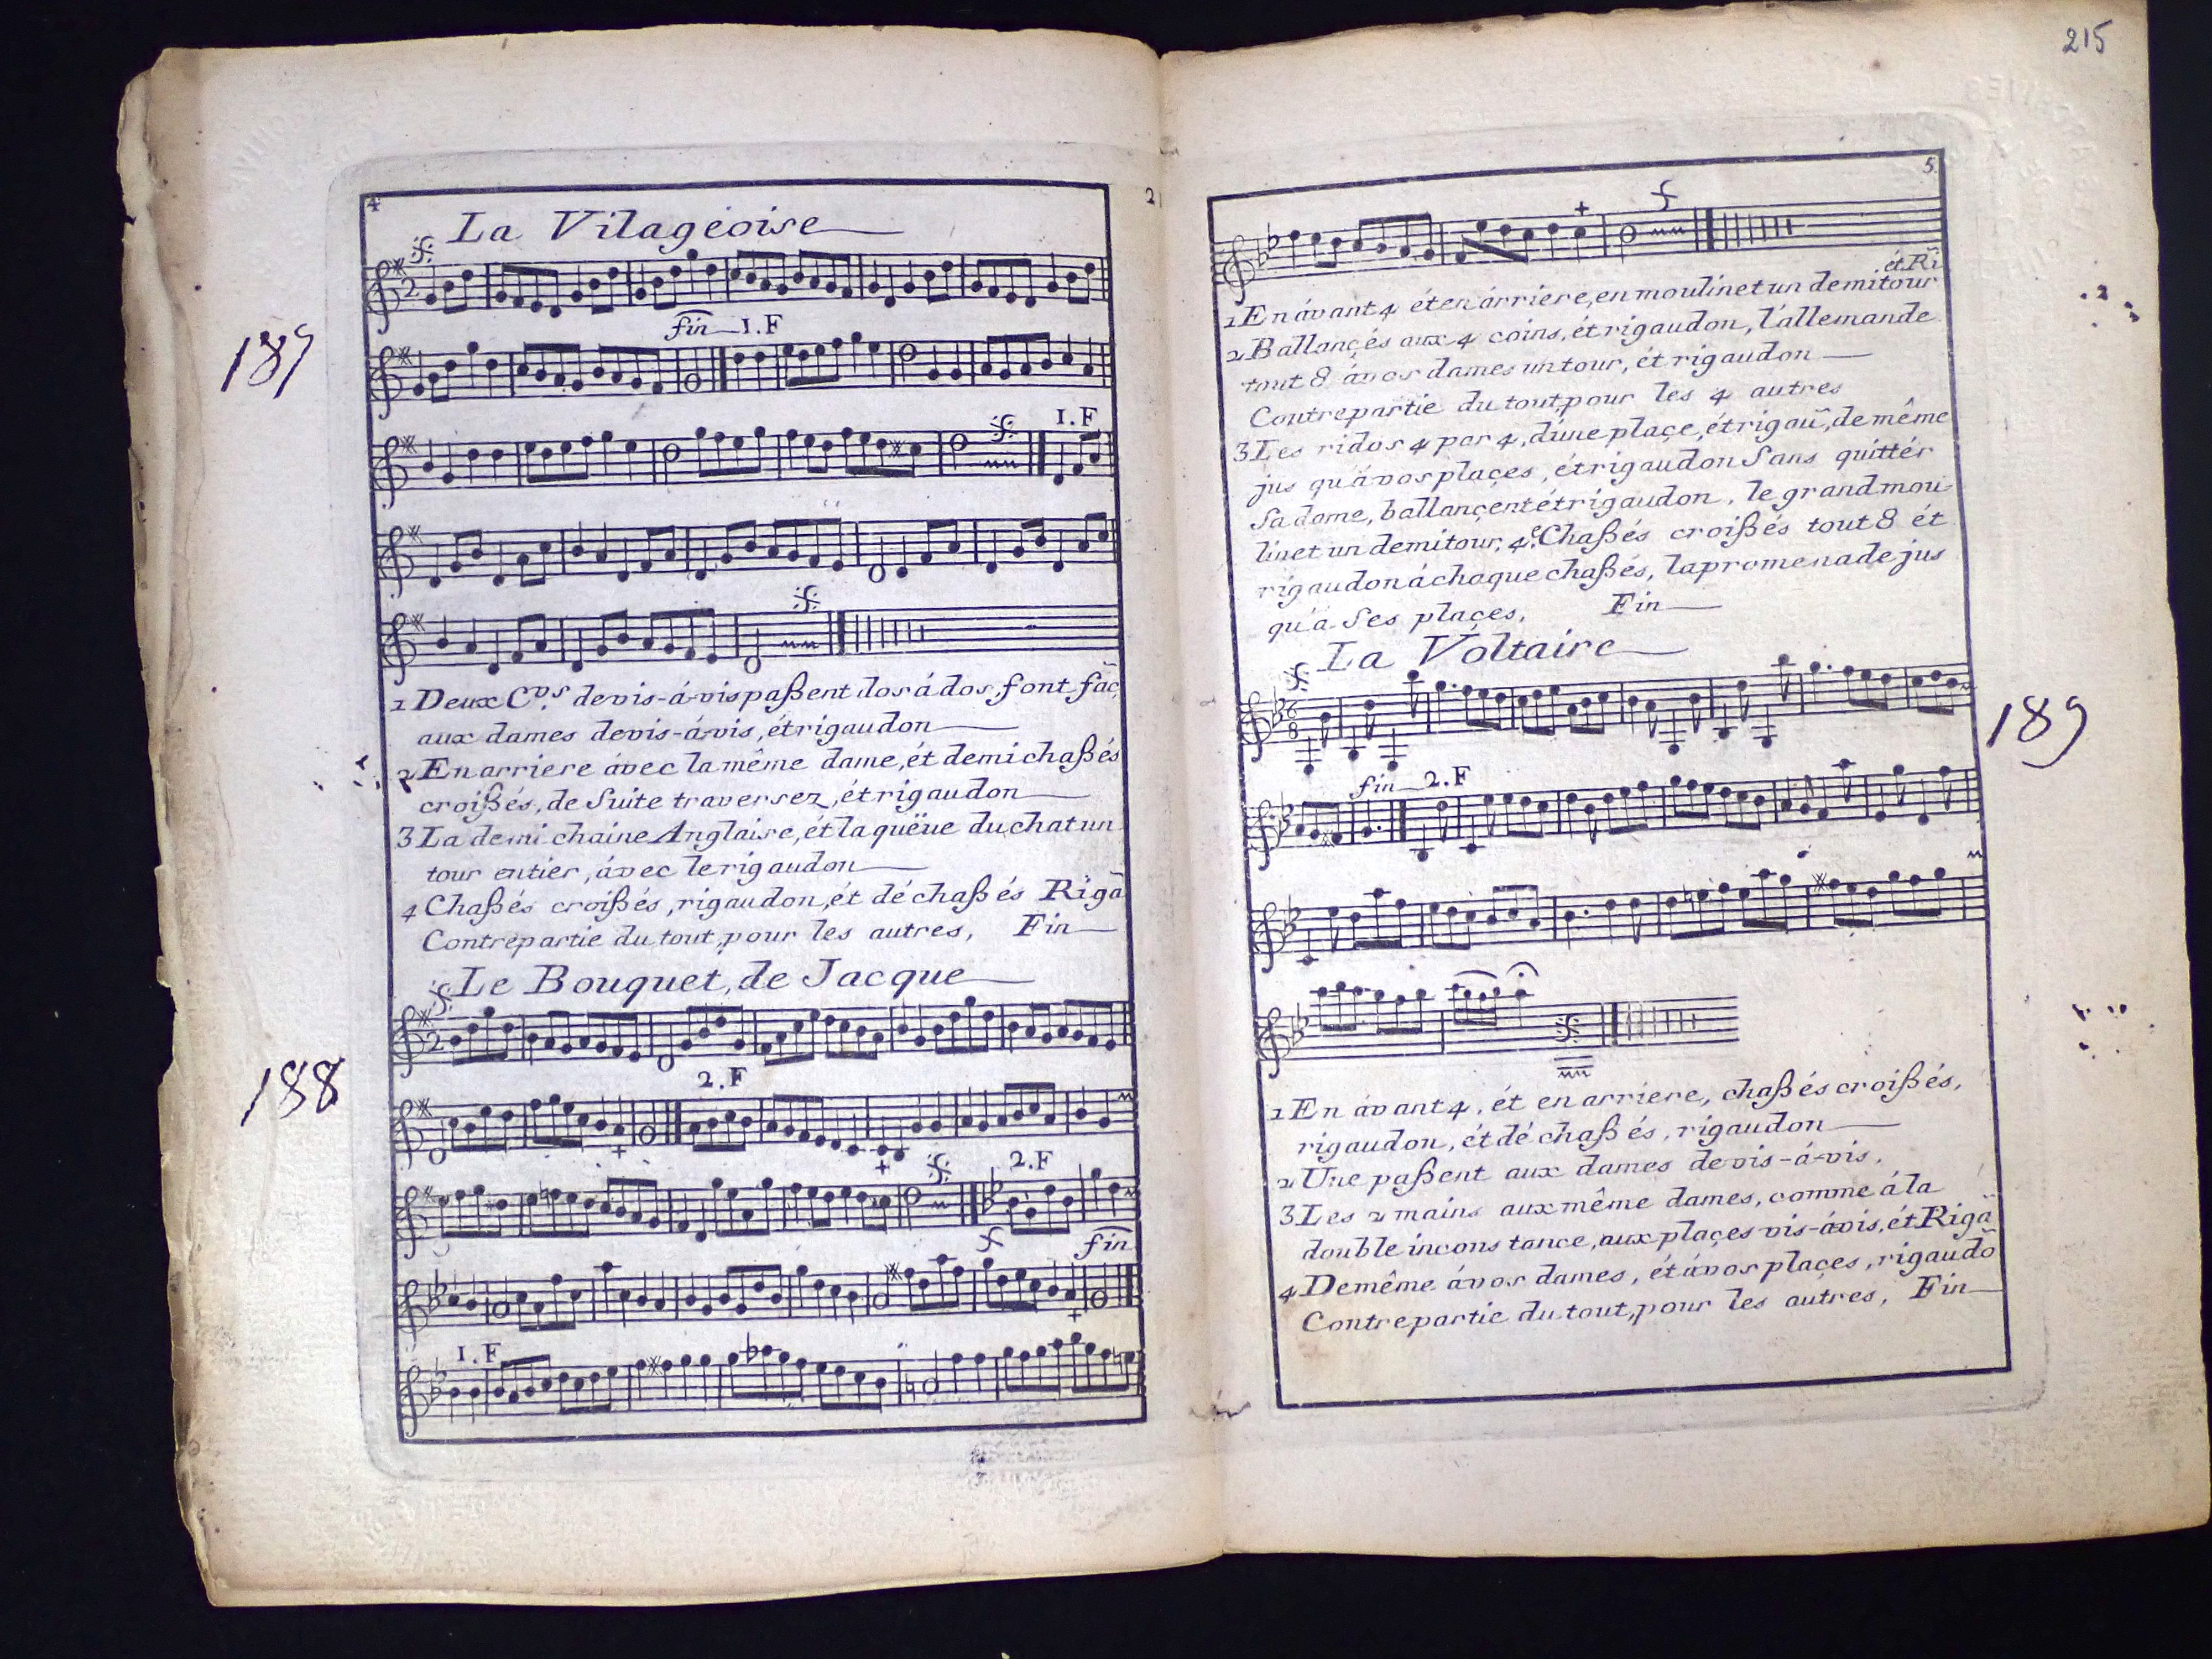 4
La Vilageoise
187
fin 1.F
1.F
1 Deux C.ᵖˢ devis-á-vis paßent dos á dos, font fac̃
aux dames devis-á-vis, ét rigaudon
2 En arriere ávec la même dame, ét demi chaßés
croißés, de Suite traversez, ét rigaudon
3 La demi chaine Anglaise, ét la quëue du chat un
tour entier, ávec le rigaudon
4 Chaßés croißés, rigaudon, ét dé chaßés Rigã
Contrepartie du tout, pour les autres, Fin
Le Bouquet, de Jacque
188
2.F
2.F
fin
1.F
215
5.
ét Rĩ
1 En ávant 4 ét en árriere, en moulinet un demi tour
2 Ballançés aux 4 coins, ét rigaudon, l'állemande
tout 8 á vos dames un tour, ét rigaudon
Contrepartie du tout, pour les 4 autres
3 Les ridos 4 par 4, d'une plaçe, ét rigaũ, de même
jus qu'á vos plaçes, ét rigaudon Sans quittér
Sa dame, ballançent ét rigaudon, le grand mou
linet un demi tour, 4.ᵉ Chaßés croißés tout 8 ét
rigaudon á chaque chaßés, la promenade jus
qu'á Ses plaçes, Fin
La Voltaire
189
fin 2.F
1 En ávant 4, ét en arriere, chaßés croißés,
rigaudon, ét dé chaßés, rigaudon
2 Une paßent aux dames devis-á-vis,
3 Les 2 mains aux même dames, comme á la
double inconstance, aux plaçes vis-ávis, ét Rigã
4 De même á vos dames, ét á vos plaçes, rigaudõ
Contrepartie du tout, pour les autres, Fin